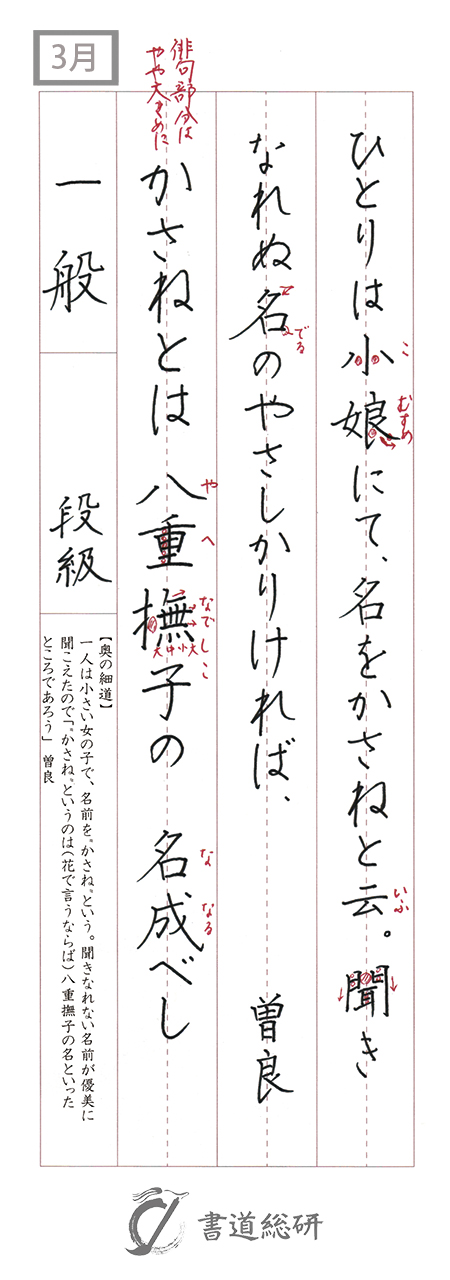 3月
俳句部分は
やや大きめに
ひとりは小娘にて、名をかさねと云。聞き
こ
むすめ
いふ
なれぬ名のやさしかりければ、 曽良
でる
かさねとは 八重撫子の 名成べし
や
へ
なでしこ
大中小大
な
なる
一般
段級
【奥の細道】
一人は小さい女の子で、名前を〝かさね〟という。聞きなれない名前が優美に
聞こえたので「〝かさね〟というのは(花で言うならば)八重撫子の名といった
ところであろう」 曽良
書道総研